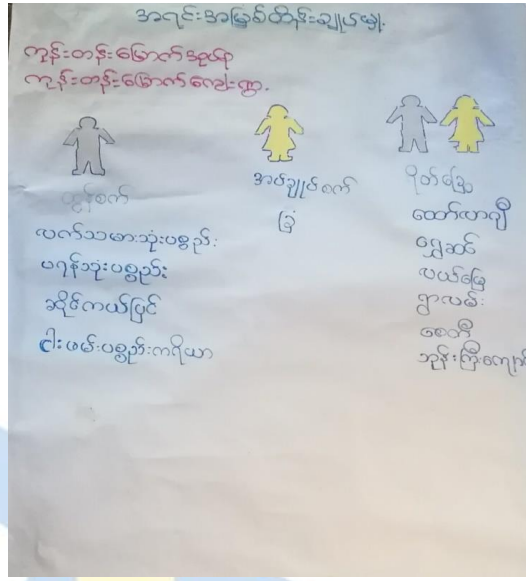 အရင်းအမြစ်ထိန်းချုပ်မှု
ကုန်းတန်းမြောက်အုပ်စု
ကုန်းတန်းမြောက်ကျေးရွာ
ထွန်စက်
လက်သမားသုံးပစ္စည်း
ပရန်သုံးပစ္စည်း
ဆိုင်ကယ်ပြင်
ငါးဖမ်းပစ္စည်းကရိယာ
အပ်ချုပ်စက်
ခြံ
ထော်လာဂျီ
ရွှေဆင်
လယ်မြေ
ရွာလမ်း
စေတီ
ဘုန်းကြီးကျောင်